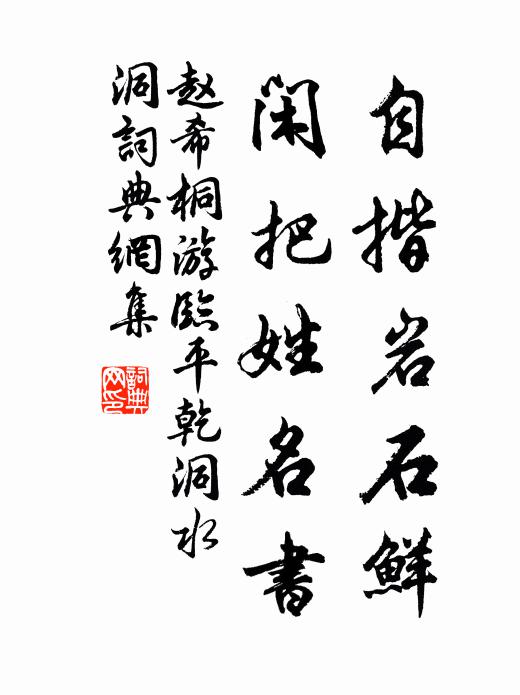 自揩岩石鮮
闲把姓名書
赵希桐游臨平乾洞水
洞詞典網集
詞典
网印